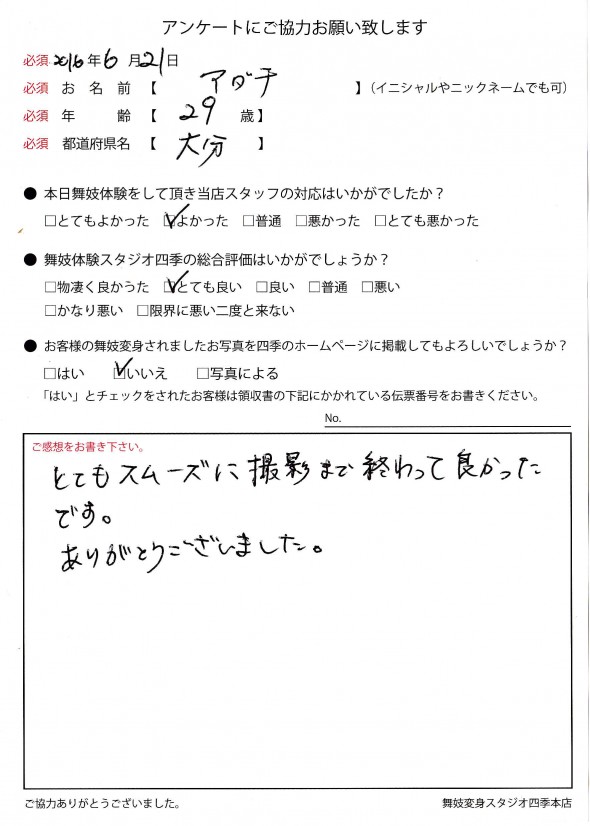 アンケートにご協力お願い致します
必須 2016年6月21日
必須 お名前【 アダチ 】(イニシャルやニックネームでも可)
必須 年齢【 29 歳】
必須 都道府県名【 大分 】
● 本日舞妓体験をして頂き当店スタッフの対応はいかがでしたか?
□とてもよかった ☑よかった □普通 □悪かった □とても悪かった
● 舞妓体験スタジオ四季の総合評価はいかがでしょうか?
□物凄く良かった ☑とても良い □良い □普通 □悪い
□かなり悪い □限界に悪い二度と来ない
● お客様の舞妓変身されましたお写真を四季のホームページに掲載してもよろしいでしょうか?
□はい ☑いいえ □写真による
「はい」とチェックをされたお客様は領収書の下記にかかれている伝票番号をお書きください。
No.
ご感想をお書き下さい。
とてもスムーズに撮影まで終わって良かった
です。
ありがとうございました。
ご協力ありがとうございました。
舞妓変身スタジオ四季本店